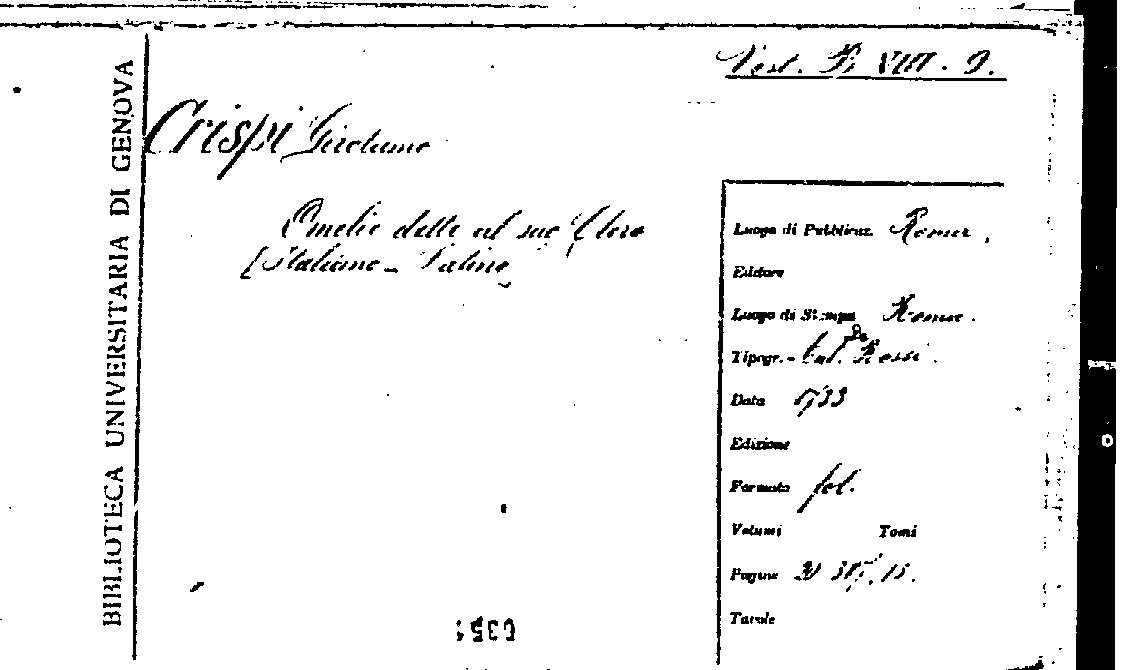 BIBLIOTECA UNIVERSITARIA DI GENOVA
Vest. VIII. 9.
Crispi Girolamo
Omelie dette al suo Clero
[Italiano - Latino]
Luogo di Pubblicaz. Roma.
Editore
Luogo di Stampa Roma.
Tipogr. - De Rossi.
Data 1733
Edizione
Formato fol.
Volumi Tomi
Pagine
Tavole